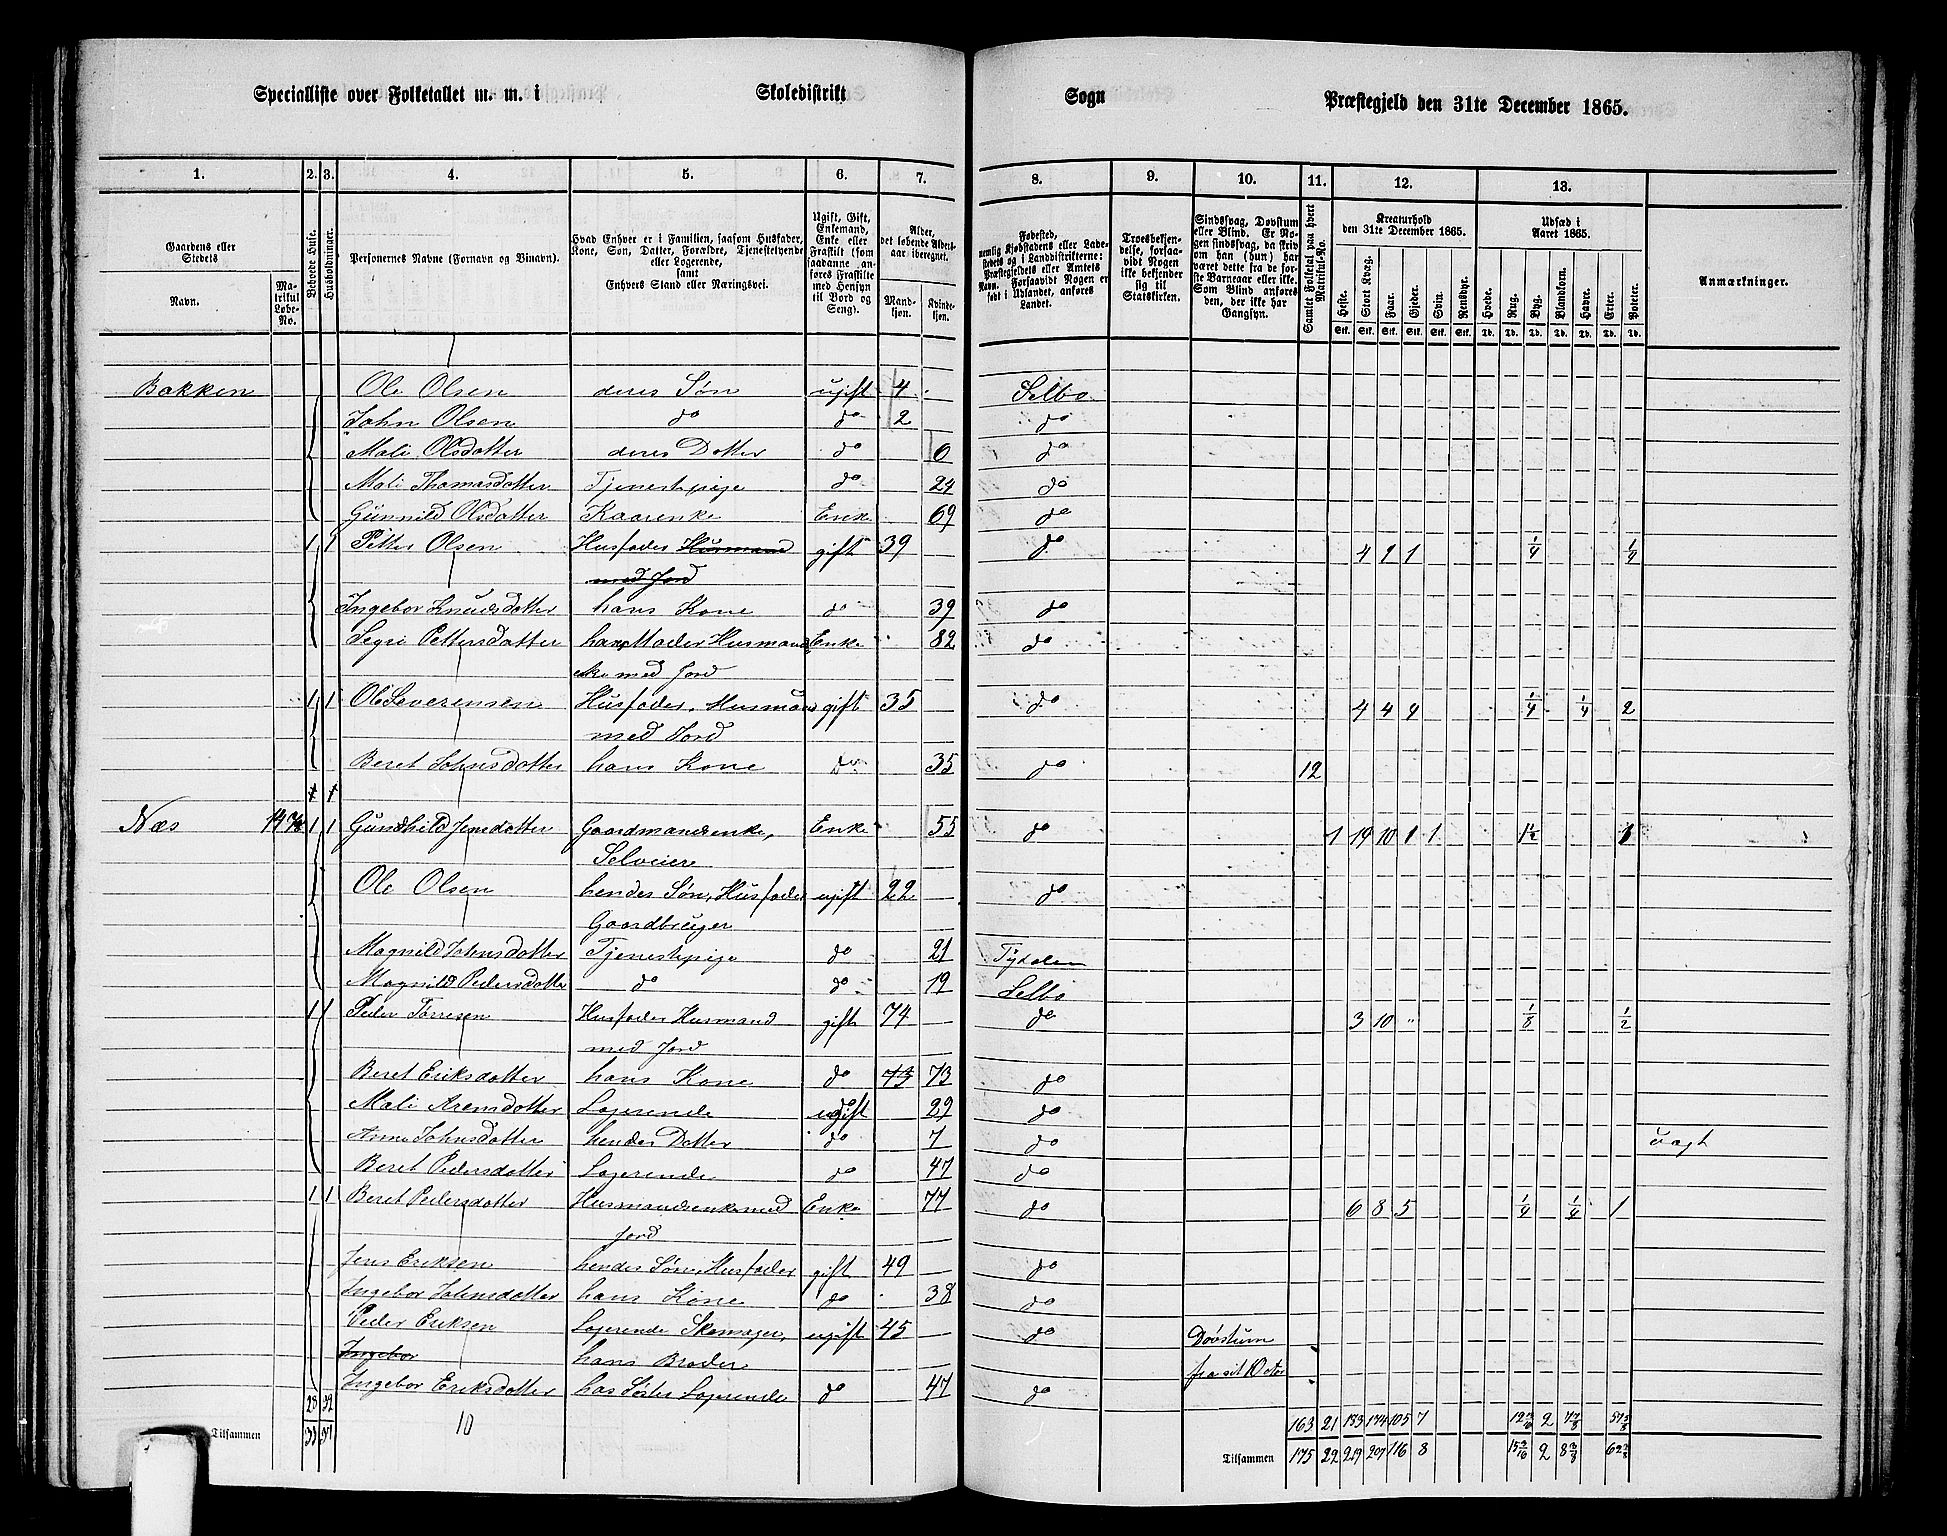 Specialliste over Folketallet m. m. i Skoledistrikt Sogn Præstegjeld den 31te December 1865.
1. 2. 3. 4. 5. 6. 7. 8. 9. 10. 11. 12. 13.
Gaardens eller Stedets
Navn.
Matrikul Løbe-No.
Beboede Huse.
Husholdninger.
Personernes Navne (Fornavn og Binavn).
Hvad Enhver er i Familien, saasom Husfader, Kone, Søn, Datter, Forældre, Tjenestetyende eller Logerende, samt Enhvers Stand eller Næringsvei.
Ugift, Gift, Enkemand, Enke eller Fraskilt (som saadanne anføres Fraskilte med Hensyn til Bord og Seng).
Alder, det løbende Aldersaar iberegnet.
Mandkjøn. Kvindekjøn.
Fødested, nemlig Kjøbstadens eller Ladestedets eller i Landdistrikterne: Præstegjeldets eller Amtets Navn. Forsaavidt Nogen er født i Udlandet, anføres Landet.
Troesbekjendelse, forsaavidt Nogen ikke bekjender sig til Statskirken.
Sindssvag, Døvstum eller Blind. Er Nogen sindssvag, da skrives om han (hun) har været dette fra de første Barneaar eller ikke. Som Blind anføres den, der ikke har Gangsyn.
Samlet Folketal paa hvert Matrikul-No.
Kreaturhold den 31te December 1865.
Heste. Stort Kvæg. Faar. Gjeder. Svin. Rensdyr.
Udsæd i Aaret 1865.
Hvede. Rug. Byg. Blandkorn. Havre. Erter. Poteter.
Stk. Stk. Stk. Stk. Stk. Stk. Td. Td. Td. Td. Td. Td. Td.
Anmærkninger.
Bakken Ole Olsen deres Søn ugift 4 Selbo
John Olsen do do 2 do
Mali Olsdatter deres Datter do 6 do
Mali Thomasdatter Tjenestpige do 24 do
Gunnild Olsdatter Kaarenke Enke 69 do
1 1 Petter Olsen Husfader Husmand gift 39 do 4 9 1 1/4 1/4
med Jord
Ingebor Knudsdatter hans Kone do 39 do
Segri Pettersdatter hans Moder Husmands Enke 82 do
eke med Jord
1 1 Ole Saverensen Husfader, Husmand gift 35 do 4 4 4 1/4 1/4 2
med Jord
Beret Johnsdatter hans Kone do 35 do 12
Næs 1 1 Gundhild Jensdatter Gaardmandsenke, Enke 55 do 1 19 10 1 1 1½ 8
Selveiere
Ole Olsen hendes Søn, Husfader ugift 22 do
Gaardbruger
Magnild Johnsdatter Tjenestepige do 21 Tydalen
Magnild Pedersdatter do do 19 Selbo
1 1 Peder Torresen Husfader Husmand gift 74 do 3 10 " 1/8 1/2
med Jord
Beret Eriksdatter hans Kone do 73 73 do
Mali Arensdatter Logerende ugift 29 do
Anne Johnsdatter hendes Datter do 7 do uægt
Beret Pedersdatter Logerende do 47 do
1 1 Beret Pedersdatter Husmandsenke med Enke 77 do 6 8 5 1/4 1/4 1
Jord
Jens Eriksen hendes Søn, Husfader gift 49 do
Ingebor Johnsdatter hans Kone do 38 do
Peder Eriksen Logerende Skomager, ugift 45 do Døvstum
Ingebor hans Broder fra sit
Ingebor Eriksdatter has Søster Logerende do 47 do
10
163 21 183 174 105 7 2
Tilsammen Tilsammen 175 22 219 207 116 8 2